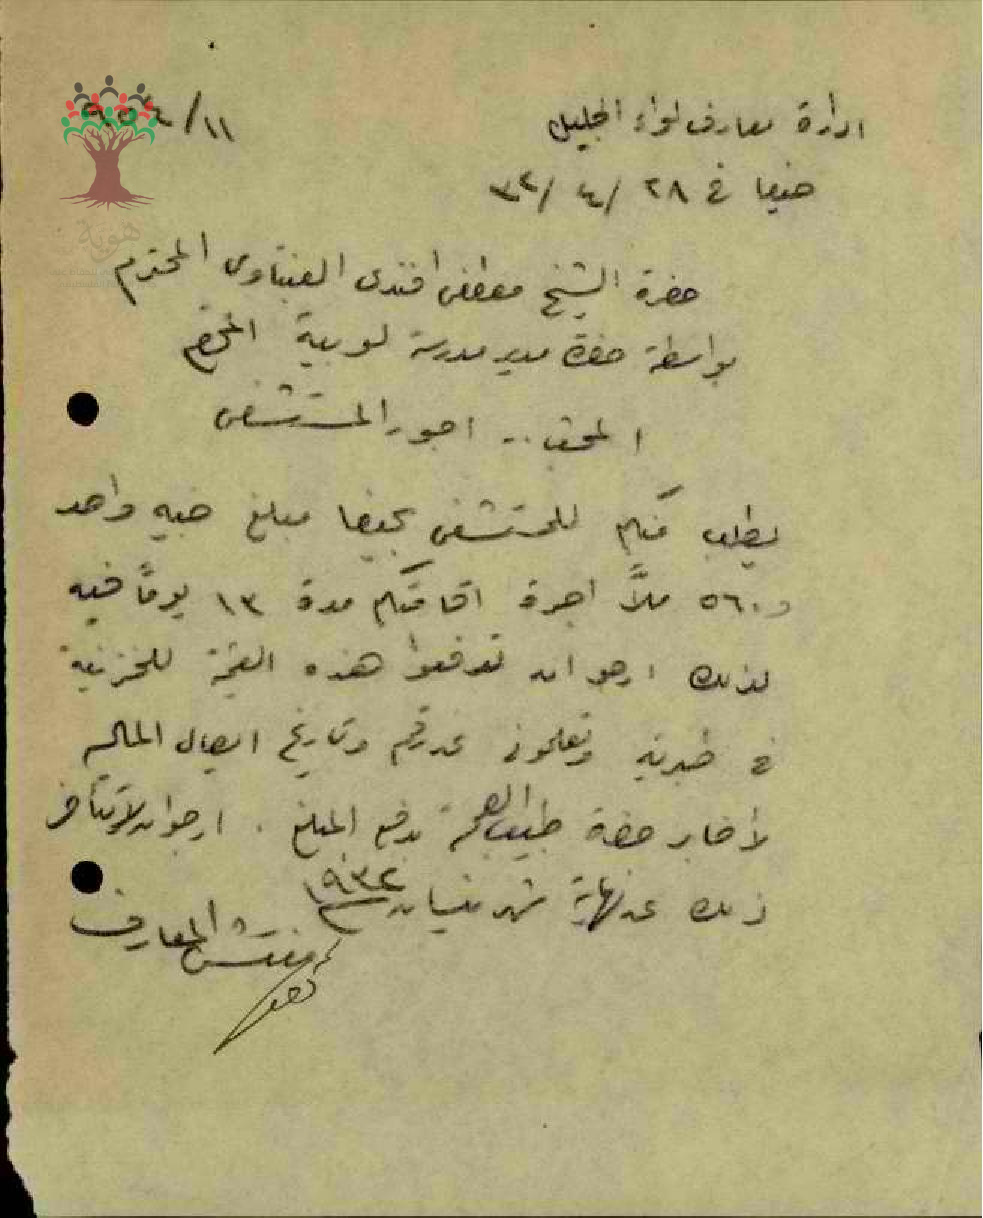 ادارة معارف لواء الجليل
١١/
حيفا في ٢٨ /٤ /٣٢
حضرة الشيخ مصطفى افندي المحترم
بواسطة حضرة مدير مدرسة لوبية
اجور المستشفى
يطلب منكم للمستشفى بحيفا مبلغ جنيه واحد
و ٥٦٠ ملاً اجرة اقامتكم مدة ١٣ يوماً فيه
لذلك ارجو ان تدفعوا هذه القيمة للخزينة
في طبريه وتعلموني عن رقم وتاريخ ايصال المالية
لأخابر حضرة طبيب الصحة بدفع المبلغ . ارجو ان لا يتأخر
ذلك عن نهاية شهر نيسان ١٩٣٢
مفتش المعارف
هوية